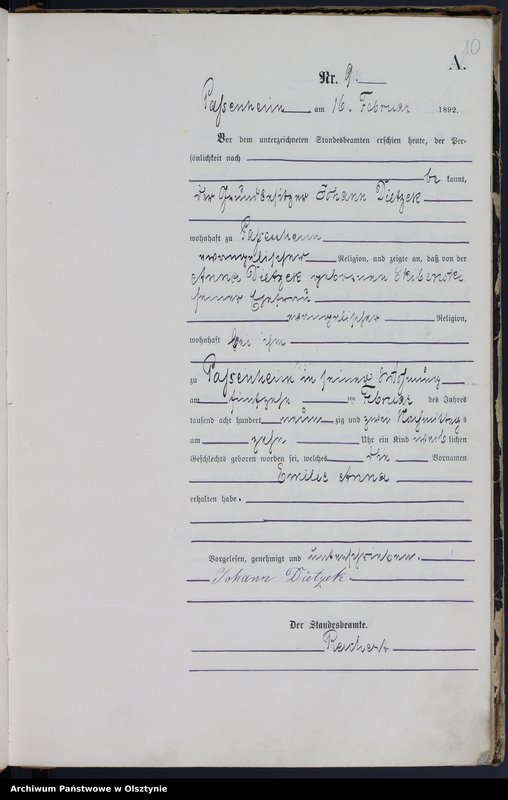 10
A.
Nr. 9.
Passenheim am 16. Februar 1892.
Vor dem unterzeichneten Standesbeamten erschien heute, der Per-
sönlichkeit nach
be kannt,
der Grundbesitzer Johann Dietzek
wohnhaft zu Passenheim
evangelischer Religion, und zeigte an, daß von der
Anna Dietzek geborenen
seiner Ehefrau
evangelischer Religion,
wohnhaft bei ihm
zu Passenheim in seiner Wohnung
am fünfzehn ten Februar des Jahres
tausend acht hundert neun zig und zwei Nachmittags
um zehn Uhr ein Kind weib lichen
Geschlechts geboren worden sei, welches die Vornamen
Emilie Anna
erhalten habe.
Vorgelesen, genehmigt und unterschrieben.
Johann Dietzek.
Der Standesbeamte.
Reichert
Archiwum Państwowe w Olsztynie